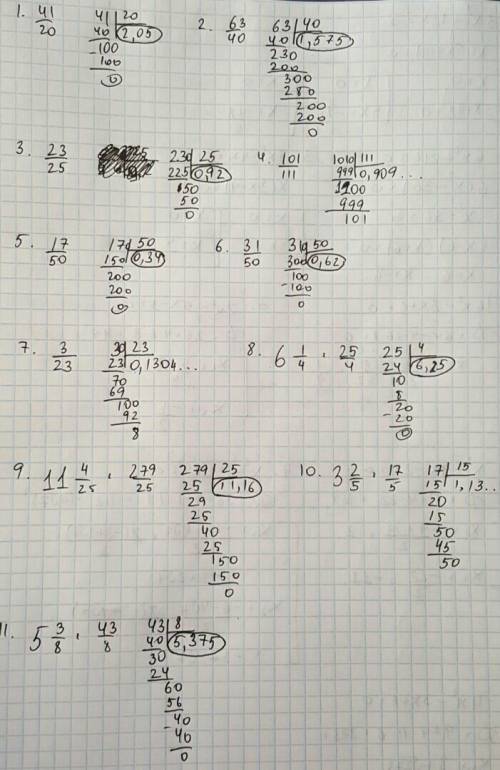 1. 41/20 41 | 20
40 | 2,05
-100
100
0
2. 63/40 63 | 40
40 | 1,575
230
200
300
280
200
200
0
3. 23/25 230 | 25
225 | 0,92
50
50
0
4. 101/111 1010 | 111
999 | 0,909...
1100
999
101
5. 17/50 170 | 50
150 | 0,34
200
200
0
6. 31/50 310 | 50
300 | 0,62
100
-100
0
7. 3/23 30 | 23
23 | 0,1304...
70
69
100
92
8
8. 6 1/4 , 25/4 25 | 4
24 | 6,25
10
8
20
-20
0
9. 11 4/25 , 279/25 279 | 25
25 | 11,16
29
25
40
25
150
150
0
10. 3 2/5 , 17/5 17 | 15
15 | 1,13..
20
15
50
45
50
11. 5 3/8 , 43/8 43 | 8
40 | 5,375
30
24
60
56
40
-40
0